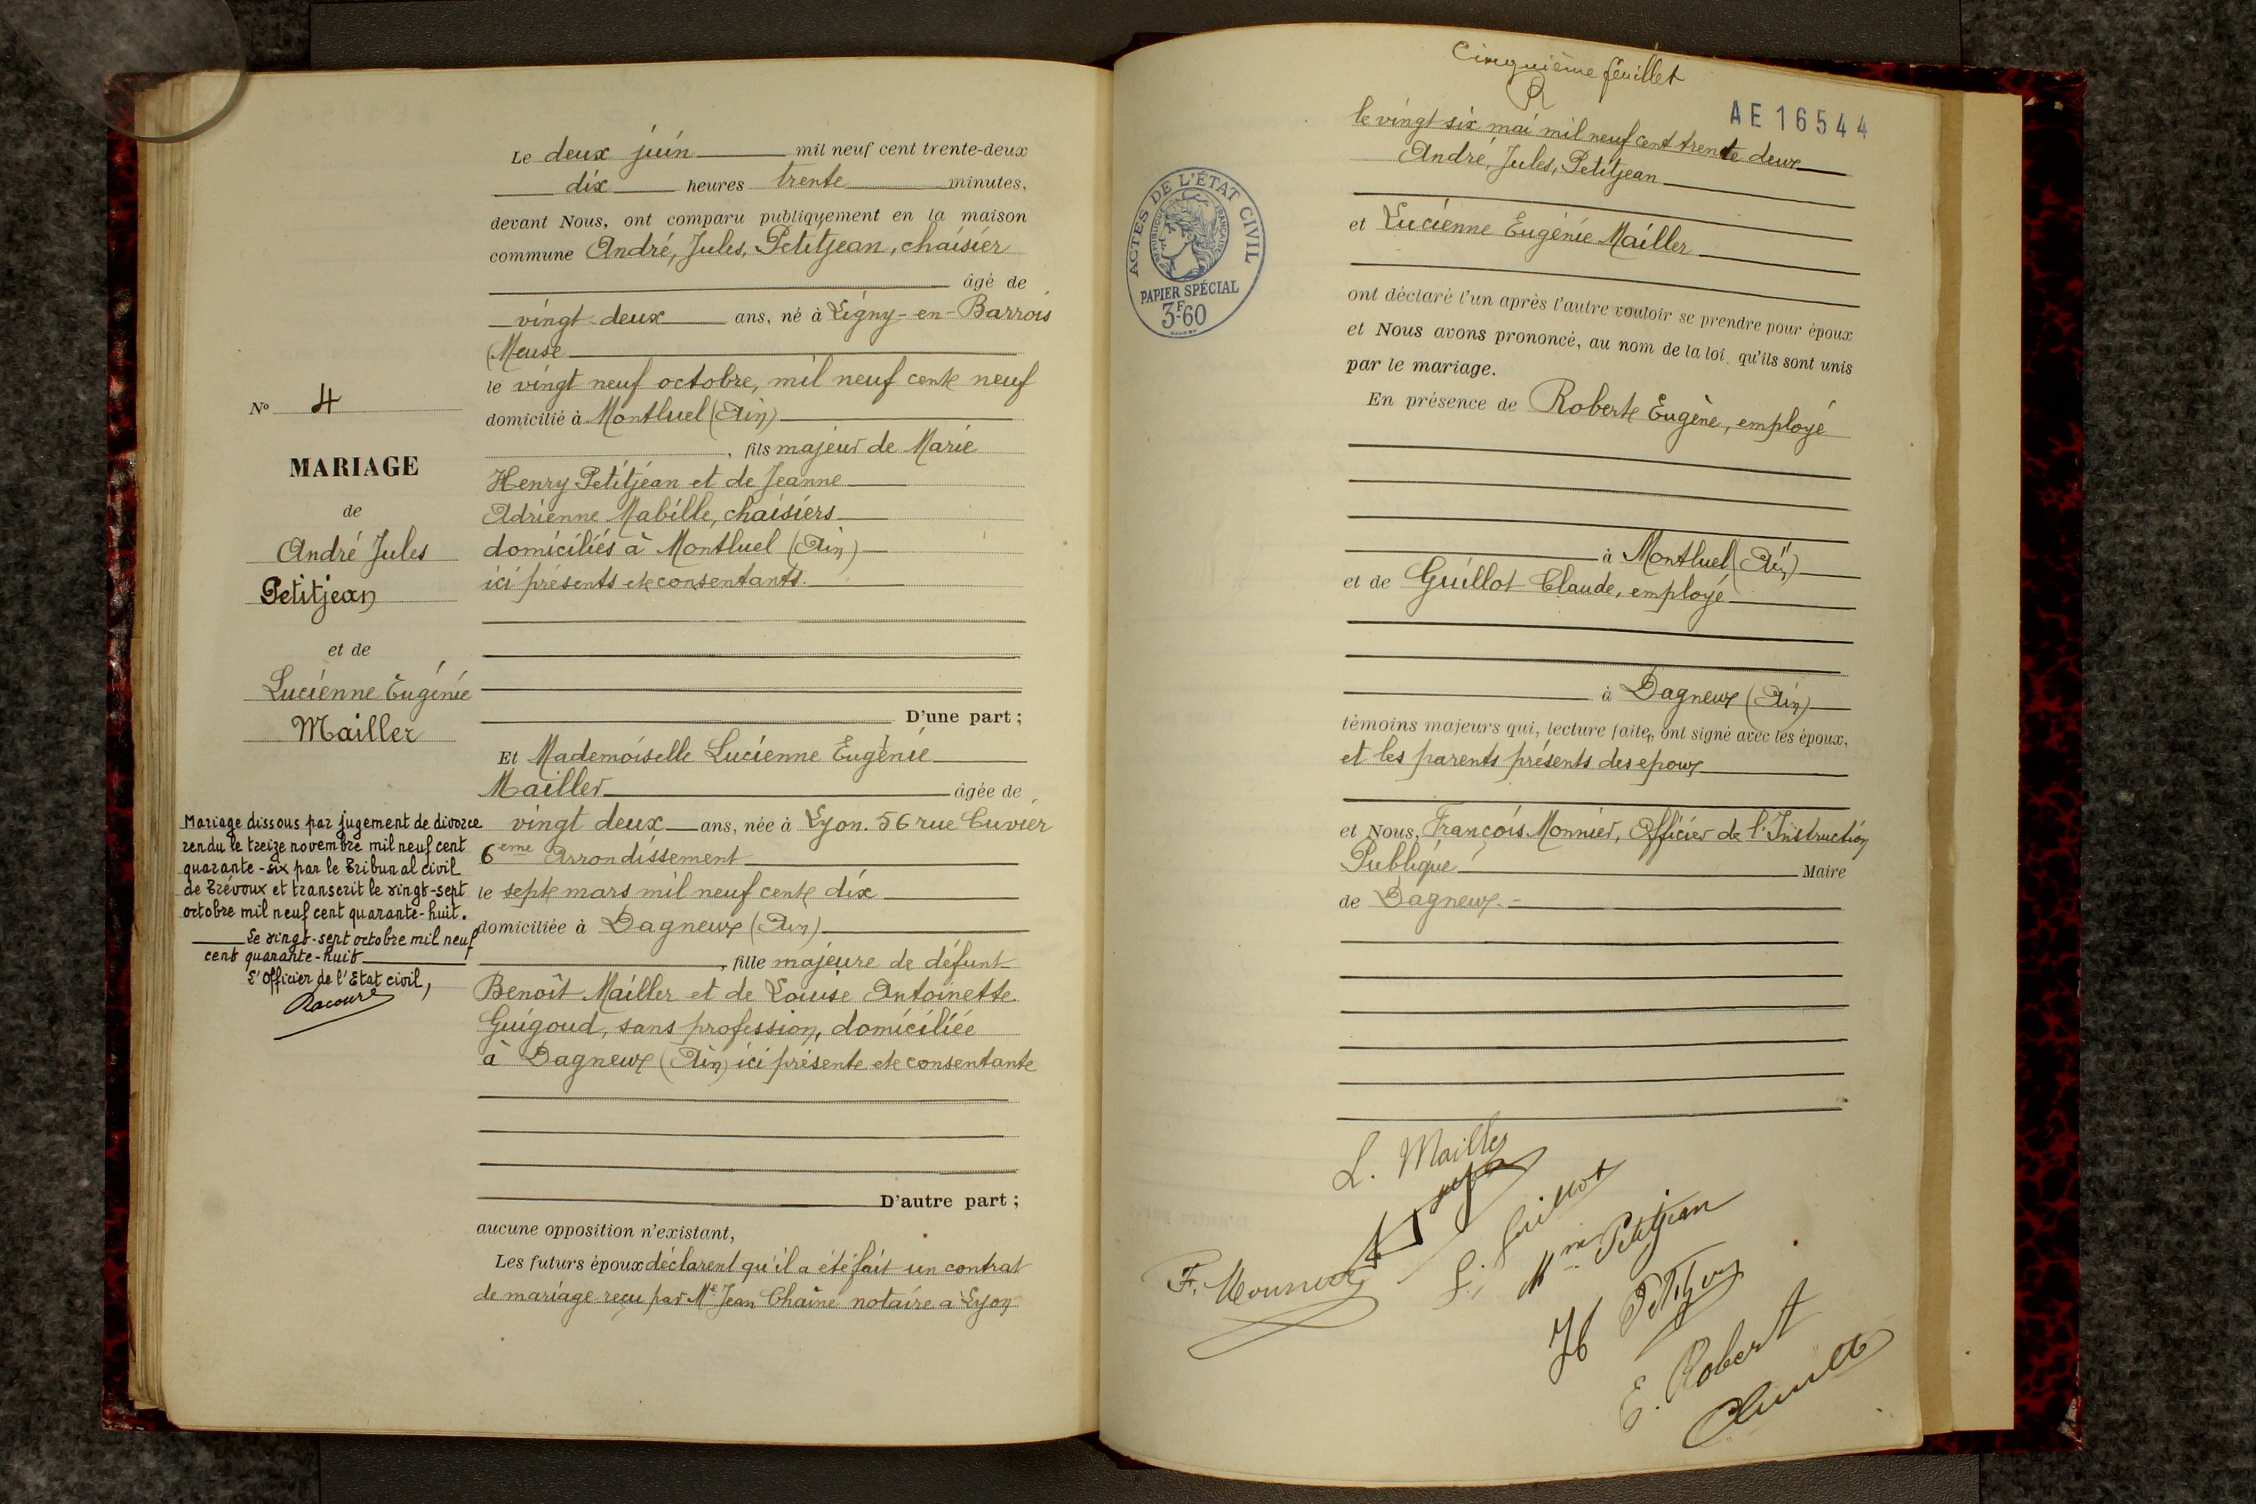 Le deux juin mil neuf cent trente-deux
dix heures trente minutes,
devant Nous, ont comparu publiquement en la maison
commune André, Jules, Petitjean, chaisier
âgé de
vingt deux ans, né à Ligny-en-Barrois
(Meuse
le vingt neuf octobre, mil neuf cent neuf
domicilié à Montluel (Ain)
, fils majeur de Marie
Henry Petitjean et de Jeanne
Adrienne Mabille, chaisiers
domiciliés à Montluel (Ain)
ici présents et consentants.
D'une part ;
Et Mademoiselle Lucienne Eugénie
Mailler âgée de
vingt deux ans, née à Lyon. 56 rue Cuvier
6eme Arrondissement
le sept mars mil neuf cent dix
domiciliée à Dagneux (Ain)
, fille majeure de défunt
Benoît Mailler et de Louise Antoinette
Guigoud, sans profession, domiciliée
à Dagneux (Ain) ici présente et consentante
D'autre part ;
aucune opposition n'existant,
Les futurs époux déclarent qu'il a été fait un contrat
de mariage reçu par Me Jean Chaine notaire a Lyon
No 4
MARIAGE
de
André Jules
Petitjean
et de
Lucienne Eugénie
Mailler
Mariage dissous par jugement de divorce
rendu le treize novembre mil neuf cent
quarante-six par le Tribunal civil
de Trévoux et transcrit le vingt-sept
octobre mil neuf cent quarante-huit.
Le vingt-sept octobre mil neuf
cent quarante-huit
L'Officier de l'Etat civil,
Cinquième feuillet
AE 16544
le vingt six mai mil neuf cent trente deux
André, Jules, Petitjean
et Lucienne Eugénie Mailler
ACTES DE L'ÉTAT CIVIL
RÉPUBLIQUE FRANÇAISE
PAPIER SPÉCIAL
3F60
ont déclaré l'un après l'autre vouloir se prendre pour époux
et Nous avons prononcé, au nom de la loi qu'ils sont unis
par le mariage.
En présence de Robert Eugène, employé
à Montluel (Ain)
et de Guillot Claude, employé
à Dagneux (Ain)
témoins majeurs qui, lecture faite, ont signé avec les époux,
et les parents présents des epoux
et Nous, François Monnier, Officier de l'Instruction
Publique Maire
de Dagneux.
L. Mailler
F. Monnier
Guillot
Mme Petitjean
H Petitjean
E. Robert